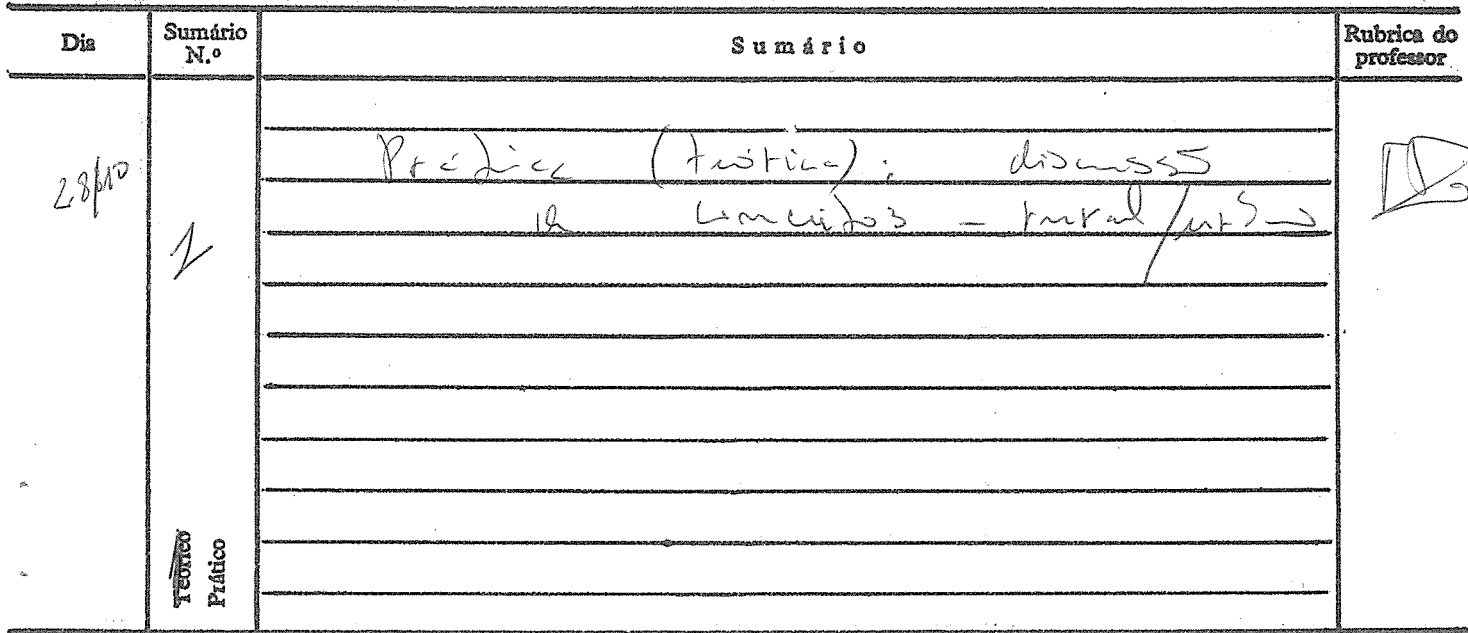 Dia
Sumário N.º
Sumário
Rubrica do professor
28/10
Prática (teórica): discussão
de conceitos - rural/urbano
Teórico
Prático